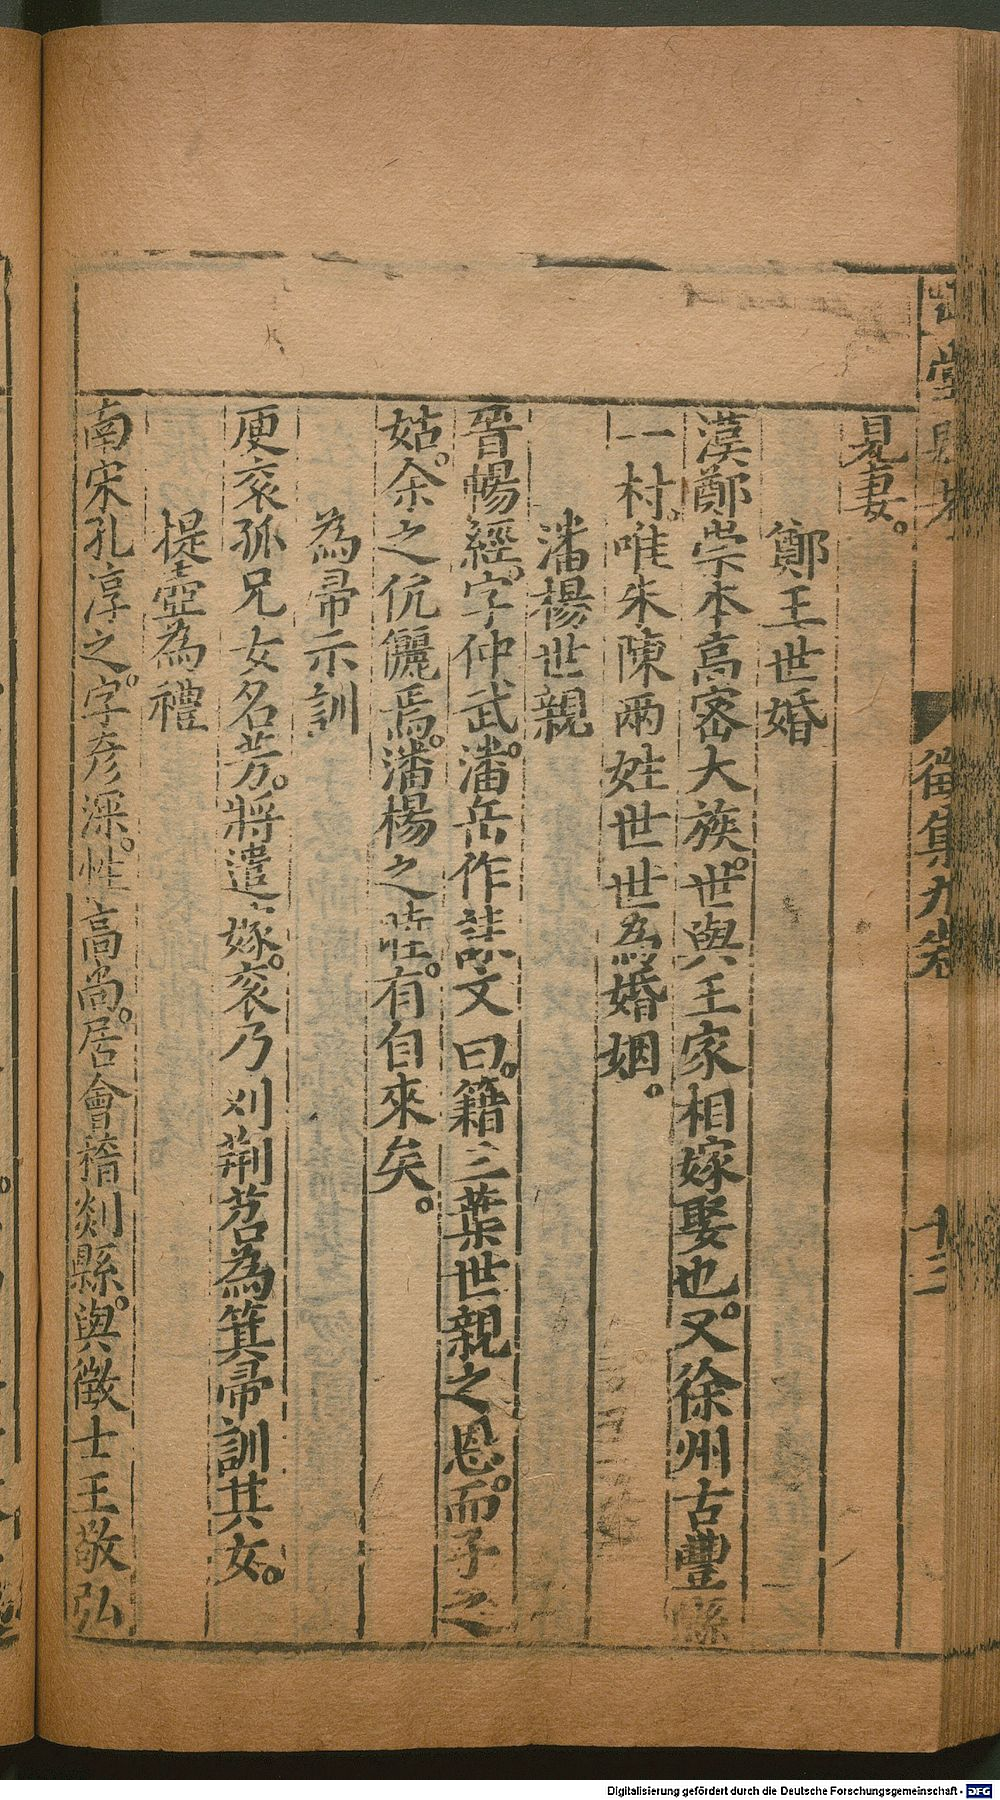 見妻。
鄭王世婚
漢鄭崇本高密大族。世與王家相嫁娶也。又徐州古豐縣
一村。唯朱陳兩姓世世為婚姻。
潘楊世親
晉暢經。字仲武。潘岳作誄文曰。籍三葉世親之恩。而子之
姑。余之伉儷焉。潘楊之睦。有自來矣。
為帚示訓
庾衮孤兄女名芳。將遣嫁。衮乃刈荆苕為箕帚訓其女。
提壺為禮
南宋孔淳之。字彥深。性高尚。居會稽剡縣。與徵士王敬弘
徵集九卷
十三
Digitalisierung gefördert durch die Deutsche Forschungsgemeinschaft - DFG